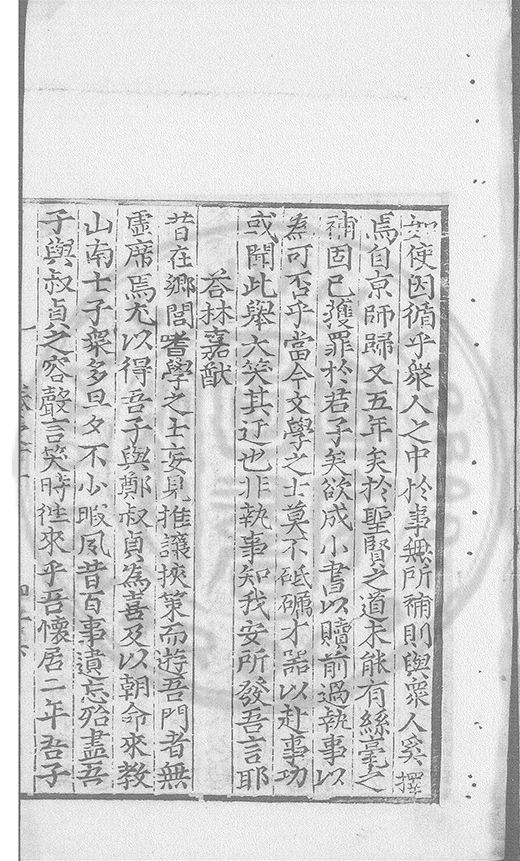 如使因循乎衆人之中於事無所補則與衆人奚擇
焉自京師歸又五年矣於聖賢之道未能有絲毫之
補固已獲罪於君子矣欲成小書以贖前過執事以
為可否乎當今文學之士莫不砥礪才器以赴事功
或聞此舉大笑其迂也非執事知我安所發吾言耶
荅林嘉猷
昔在鄉閭嗜學之士妄見推讓挾策而遊吾門者無
虛席焉尤以得吾子與鄭叔貞為喜及以朝命來教
山南士子衆多旦夕不少暇夙昔百事遺忘殆盡吾
子與叔貞之容聲言笑時徃來乎吾懷居二年吾子